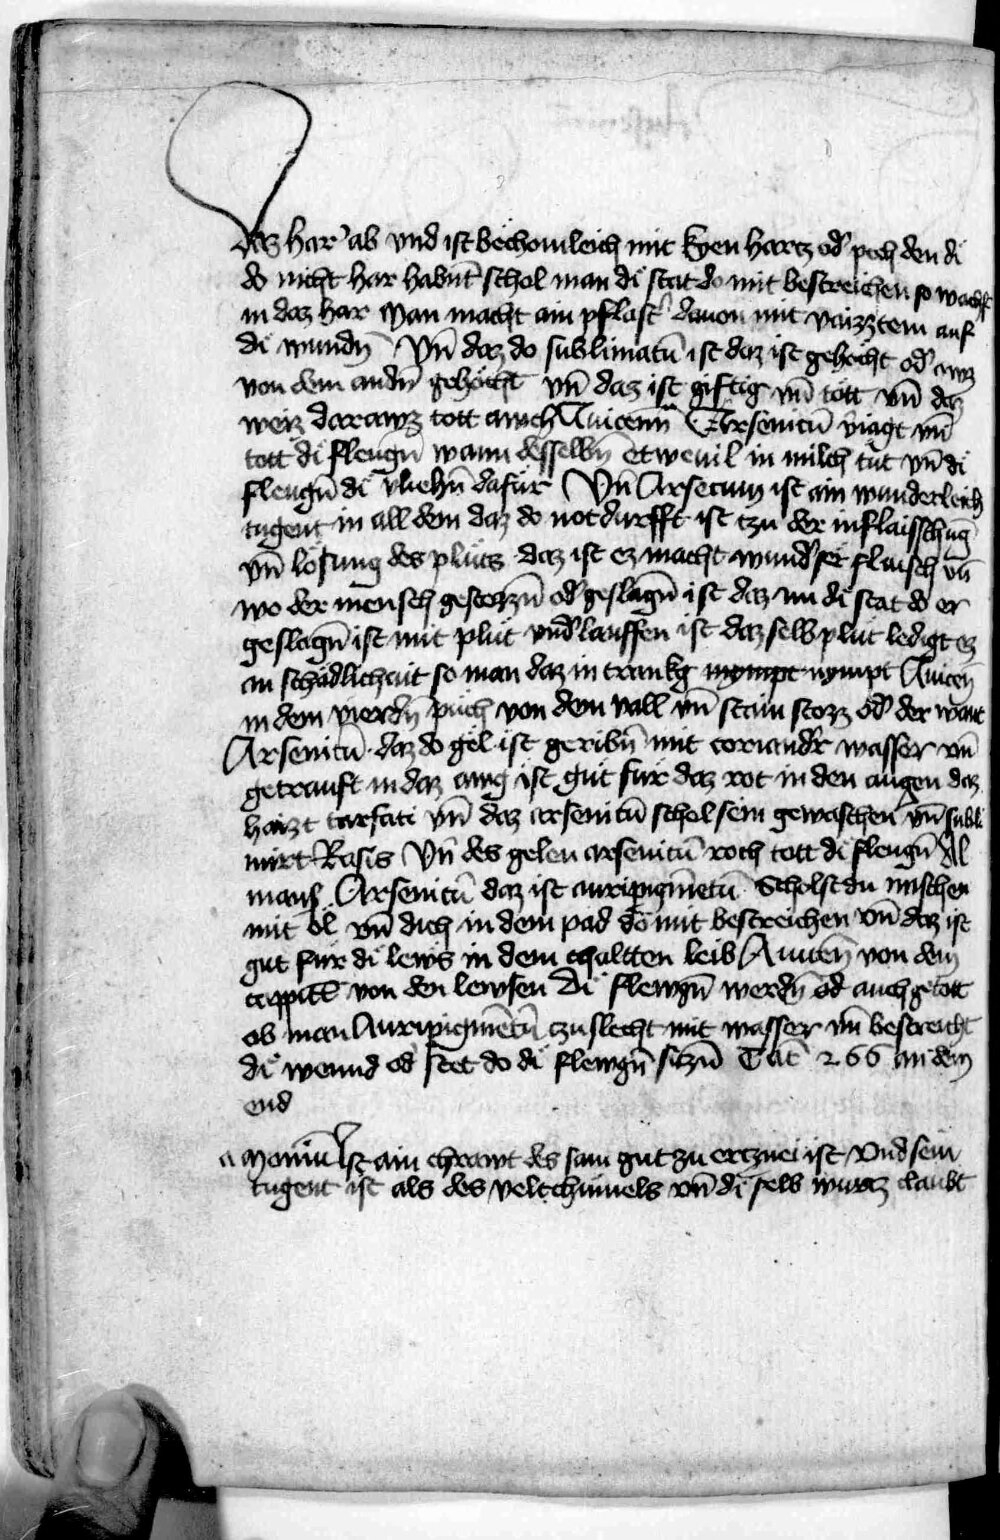 daz har ab vnd ist bechomleich mit kyen hartz od' pech den di
do nicht har habnt schol man di stat do mit bestreichen so wachst
in daz har Man macht ain pflast' dauon mit vaizztem auf
di wundn̄ Vn̄ daz do sublimatū ist daz ist gehocht od' awz
von dem andn̄ gehöcht vn̄ daz ist giftig vn̄ tött vn̄ daz
weiz darawz tott awch Auicenn̄ Arsenicū v'iagt vn̄
tott di fleugn̄ wann desselbn̄ etwevil in milch tut vn̄ di
fleugn̄ di vliehn̄ dafür Vn̄ Arsecum ist ain wunderleich
tugent in all dem daz do notdurfft ist tzu der inflaisschūg
vn̄ lösung des pluts daz ist ez macht wund' ser flaisch vn̄
wo der mensch gestozzn̄ od' geslagn̄ ist daz im di stat do er
geslagn̄ ist mit plut vnd'lauffen ist daz selb plut ledigt ez
an schädlichait so man daz in trankg nympt nympt Auicen̄
in dem vierdn̄ puch von dem vall vn̄ stain stozz od' der want
Arsenicū daz do gel ist geribn̄ mit coriand'r wasser vn̄
getrauft in daz awg ist gut für daz rot in den augen daz
haizt tarfati vn̄ daz arsenicū schol sein gewaschen vn̄ subli
mirt Rasis Vn̄ des gelen arsenicū roch tott di fleugn̄ Al
mans Arsenicū daz ist auripigm̄etū Scholst du mischen
mit öl vn̄ dich in dem pad do mit bestreichen vn̄ daz ist
gut für di lews in dem chaltten leib Auicen̄ von dem
cappitt̄ von den lewsen Di flewgn̄ werdn̄ od auch getott
ob man Auripigmētū tzuslecht mit wasser vn̄ bestreicht
di wennd od stet do di flewgn̄ sitzn̄ Tat̄ 266 an dem
end
a Moniū Ist ain chrawt des sam gut zu ertznei ist Vnd sein
tugent ist als des veltchümels vn̄ di selb wurtz claubt